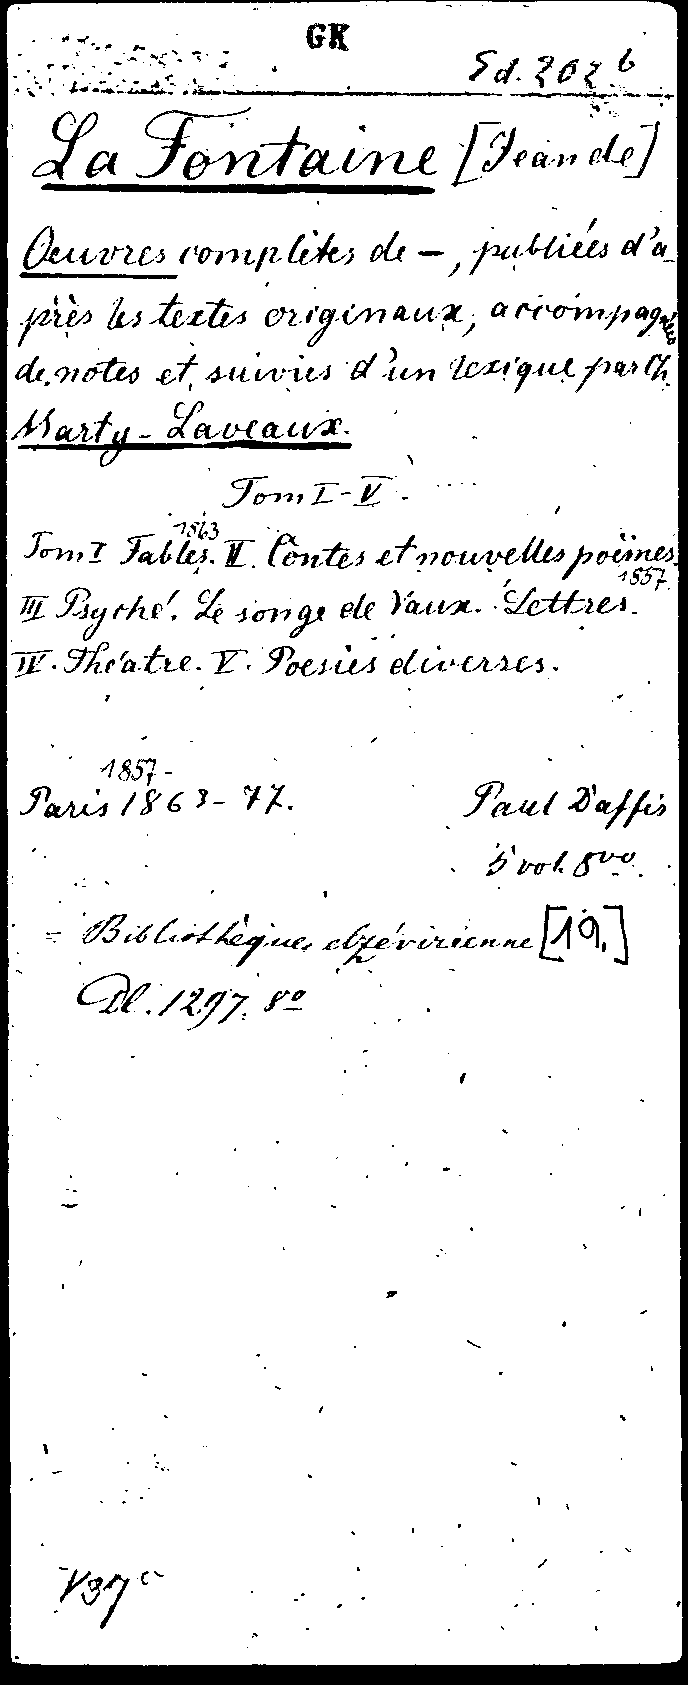 GK
Sd. 202 b
La Fontaine [Jean de]
Oeuvres complètes de —, publiées d'a-
près les textes originaux, accompagnées
de notes et suivies d'un lexique par Ch.
Marty-Laveaux.
Tom I-V.
1863
Tom I Fables. II. Contes et nouvelles poëmes.
1857.
III Psyché. Le songe de Vaux. Lettres.
IV. Théatre. V. Poesies diverses.
1857-
Paris 1863-77. Paul Daffis
5 vol. 8vo.
= Bibliothèque elzévirienne [19.]
Dl. 1297. 8o
V37c